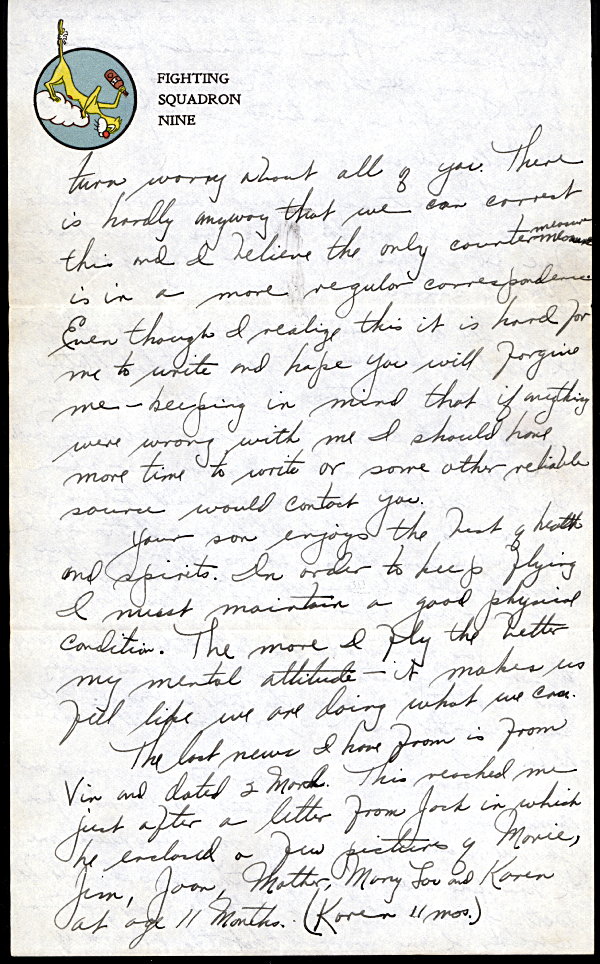 FIGHTING
SQUADRON
NINE
turn worry about all of you. There
is hardly anyway that we can correct
this and I believe the only counter measure
is in a more regular correspondence
Even though I realize this it is hard for
me to write and hope you will forgive
me — keeping in mind that if anything
were wrong with me I should have
more time to write or some other reliable
source would contact you.
Your son enjoys the best of health
and spirits. In order to keep flying
I must maintain a good physical
condition. The more I fly the better
my mental attitude — it makes us
feel like we are doing what we can.
The last news I have from is from
Vin and dated 2 March. This reached me
just after a letter from Jack in which
he enclosed a few pictures of Marie,
Jim, Joan, Mother, Mary Lou and Karen
at age 11 Months. (Karen 11 mos.)